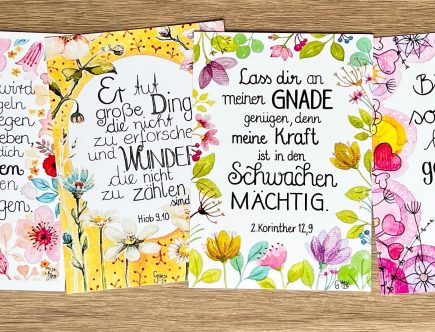 wird
geln
egen
eben,
dich
en
gen.
Er tut
große Ding
die nicht
zu erforsche
und WUNDER
die nicht
zu zählen
sind
Hiob 9,10
Lass dir an
meinen GNADE
genügen, denn
meine Kraft
ist in den
Schwachen
MÄCHTIG.
2. Korinther 12,9
B
so
ge